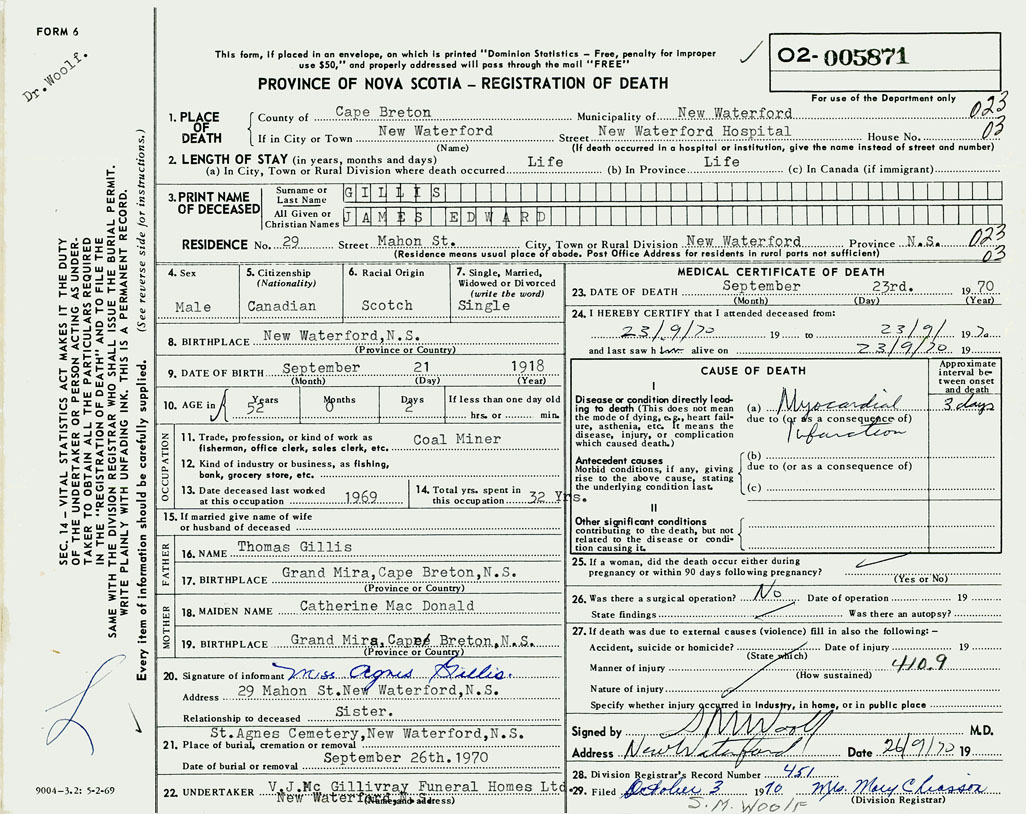 FORM 6
Dr. Woolf.
This form, if placed in an envelope, on which is printed "Dominion Statistics – Free, penalty for improper
use $50," and properly addressed will pass through the mail "FREE"
02-005871
PROVINCE OF NOVA SCOTIA – REGISTRATION OF DEATH
For use of the Department only
1. PLACE OF DEATH
County of Cape Breton Municipality of New Waterford 023
If in City or Town New Waterford Street New Waterford Hospital House No. 03
(Name) (If death occurred in a hospital or institution, give the name instead of street and number)
2. LENGTH OF STAY (in years, months and days)
(a) In City, Town or Rural Division where death occurred Life (b) In Province Life (c) In Canada (if immigrant)
3. PRINT NAME OF DECEASED
Surname or Last Name GILLIS
All Given or Christian Names JAMES EDWARD
RESIDENCE No. 29 Street Mahon St. City, Town or Rural Division New Waterford Province N.S. 023
(Residence means usual place of abode. Post Office Address for residents in rural parts not sufficient) 03
4. Sex
Male
5. Citizenship
(Nationality)
Canadian
6. Racial Origin
Scotch
7. Single, Married,
Widowed or Divorced
(write the word)
Single
8. BIRTHPLACE New Waterford,N.S.
(Province or Country)
9. DATE OF BIRTH September 21 1918
(Month) (Day) (Year)
10. AGE in Years 52 Months 0 Days 2 If less than one day old
hrs. or min.
OCCUPATION
11. Trade, profession, or kind of work as
fisherman, office clerk, sales clerk, etc. Coal Miner
12. Kind of industry or business, as fishing,
bank, grocery store, etc.
13. Date deceased last worked
at this occupation 1969
14. Total yrs. spent in
this occupation 32 Yrs.
15. If married give name of wife
or husband of deceased
FATHER
16. NAME Thomas Gillis
17. BIRTHPLACE Grand Mira,Cape Breton,N.S.
(Province or Country)
MOTHER
18. MAIDEN NAME Catherine Mac Donald
19. BIRTHPLACE Grand Mira,Cape Breton,N.S.
(Province or Country)
20. Signature of informant Miss Agnes Gillis.
Address 29 Mahon St.New Waterford,N.S.
Relationship to deceased Sister.
St.Agnes Cemetery,New Waterford,N.S.
21. Place of burial, cremation or removal
Date of burial or removal September 26th.1970
22. UNDERTAKER V.J.Mc Gillivray Funeral Homes Ltd.
New Waterford, N.S.
(Name and address)
MEDICAL CERTIFICATE OF DEATH
23. DATE OF DEATH September 23rd. 1970
(Month) (Day) (Year)
24. I HEREBY CERTIFY that I attended deceased from:
23/9/70 19 to 23/9/ 1970
and last saw him alive on 23/9/70 19
CAUSE OF DEATH
Approximate
interval be-
tween onset
and death
I
Disease or condition directly lead-
ing to death (This does not mean
the mode of dying, e.g., heart fail-
ure, asthenia, etc. It means the
disease, injury, or complication
which caused death.)
(a) Myocardial 3 days
due to (or as a consequence of)
Infarction
Antecedent causes
Morbid conditions, if any, giving
rise to the above cause, stating
the underlying condition last.
(b)
due to (or as a consequence of)
(c)
II
Other significant conditions
contributing to the death, but not
related to the disease or condi-
tion causing it.
25. If a woman, did the death occur either during
pregnancy or within 90 days following pregnancy?
(Yes or No)
26. Was there a surgical operation? No Date of operation 19
State findings Was there an autopsy?
27. If death was due to external causes (violence) fill in also the following: –
Accident, suicide or homicide? Date of injury 19
(State which)
Manner of injury 410.9
(How sustained)
Nature of injury
Specify whether injury occurred in Industry, in home, or in public place
Signed by S M Woolf M.D.
Address New Waterford Date 26/9/70 19
28. Division Registrar's Record Number 451
29. Filed October 3 1970 Mrs. Mary Chiasson
(Division Registrar)
S.M. WOOLF
SEC. 14 – VITAL STATISTICS ACT MAKES IT THE DUTY
OF THE UNDERTAKER OR PERSON ACTING AS UNDER-
TAKER TO OBTAIN ALL THE PARTICULARS REQUIRED
IN THE "REGISTRATION OF DEATH" AND TO FILE THE
SAME WITH THE DIVISION REGISTRAR WHO SHALL ISSUE THE BURIAL PERMIT.
WRITE PLAINLY WITH UNFADING INK. THIS IS A PERMANENT RECORD.
Every item of information should be carefully supplied. (See reverse side for instructions.)
9004-3.2: 5-2-69